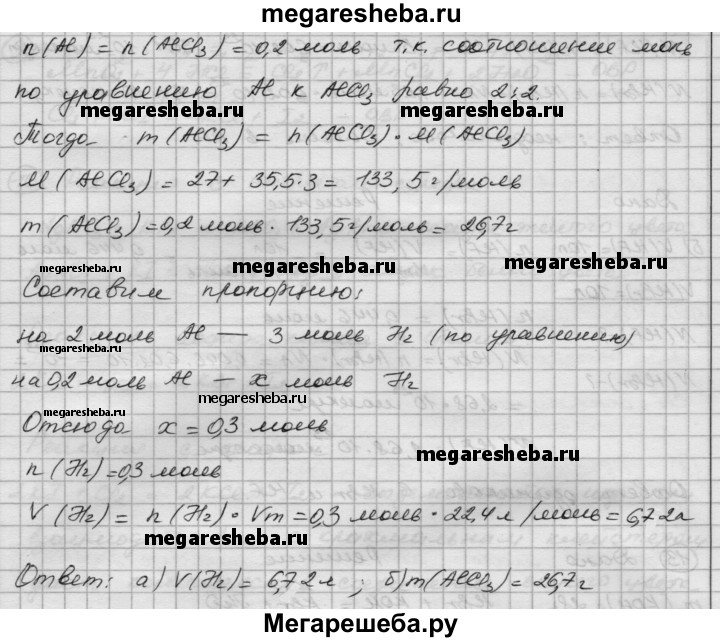 megaresheba.ru
n(Al) = n(AlCl3) = 0,2 моль т.к. соотношение моль
по уравнению Al к AlCl3 равно 2:2.
megaresheba.ru megaresheba.ru
Тогда m(AlCl3) = n(AlCl3)·M(AlCl3)
M(AlCl3) = 27 + 35,5·3 = 133,5 г/моль
m(AlCl3) = 0,2 моль · 133,5 г/моль = 26,7 г
megaresheba.ru megaresheba.ru
Составим пропорцию:
на 2 моль Al — 3 моль H2 (по уравнению)
megaresheba.ru
на 0,2 моль Al — x моль H2
megaresheba.ru
megaresheba.ru
Отсюда x = 0,3 моль
megaresheba.ru
n(H2) = 0,3 моль
V(H2) = n(H2)·Vm = 0,3 моль · 22,4 л/моль = 6,72 л
megaresheba.ru
Ответ: а) V(H2) = 6,72 л; б) m(AlCl3) = 26,7 г
Мегарешеба.ру